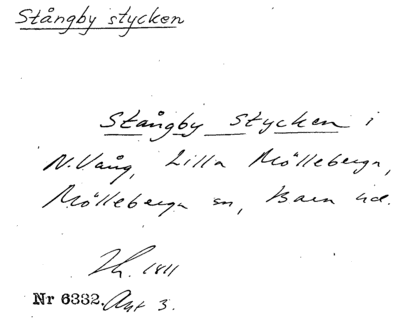 Stångby stycken
Stångby stycken i
N.Vång, Lilla Mölleberga,
Mölleberga sn, Bara hd.
1811
Nr 6332. Akt 3.